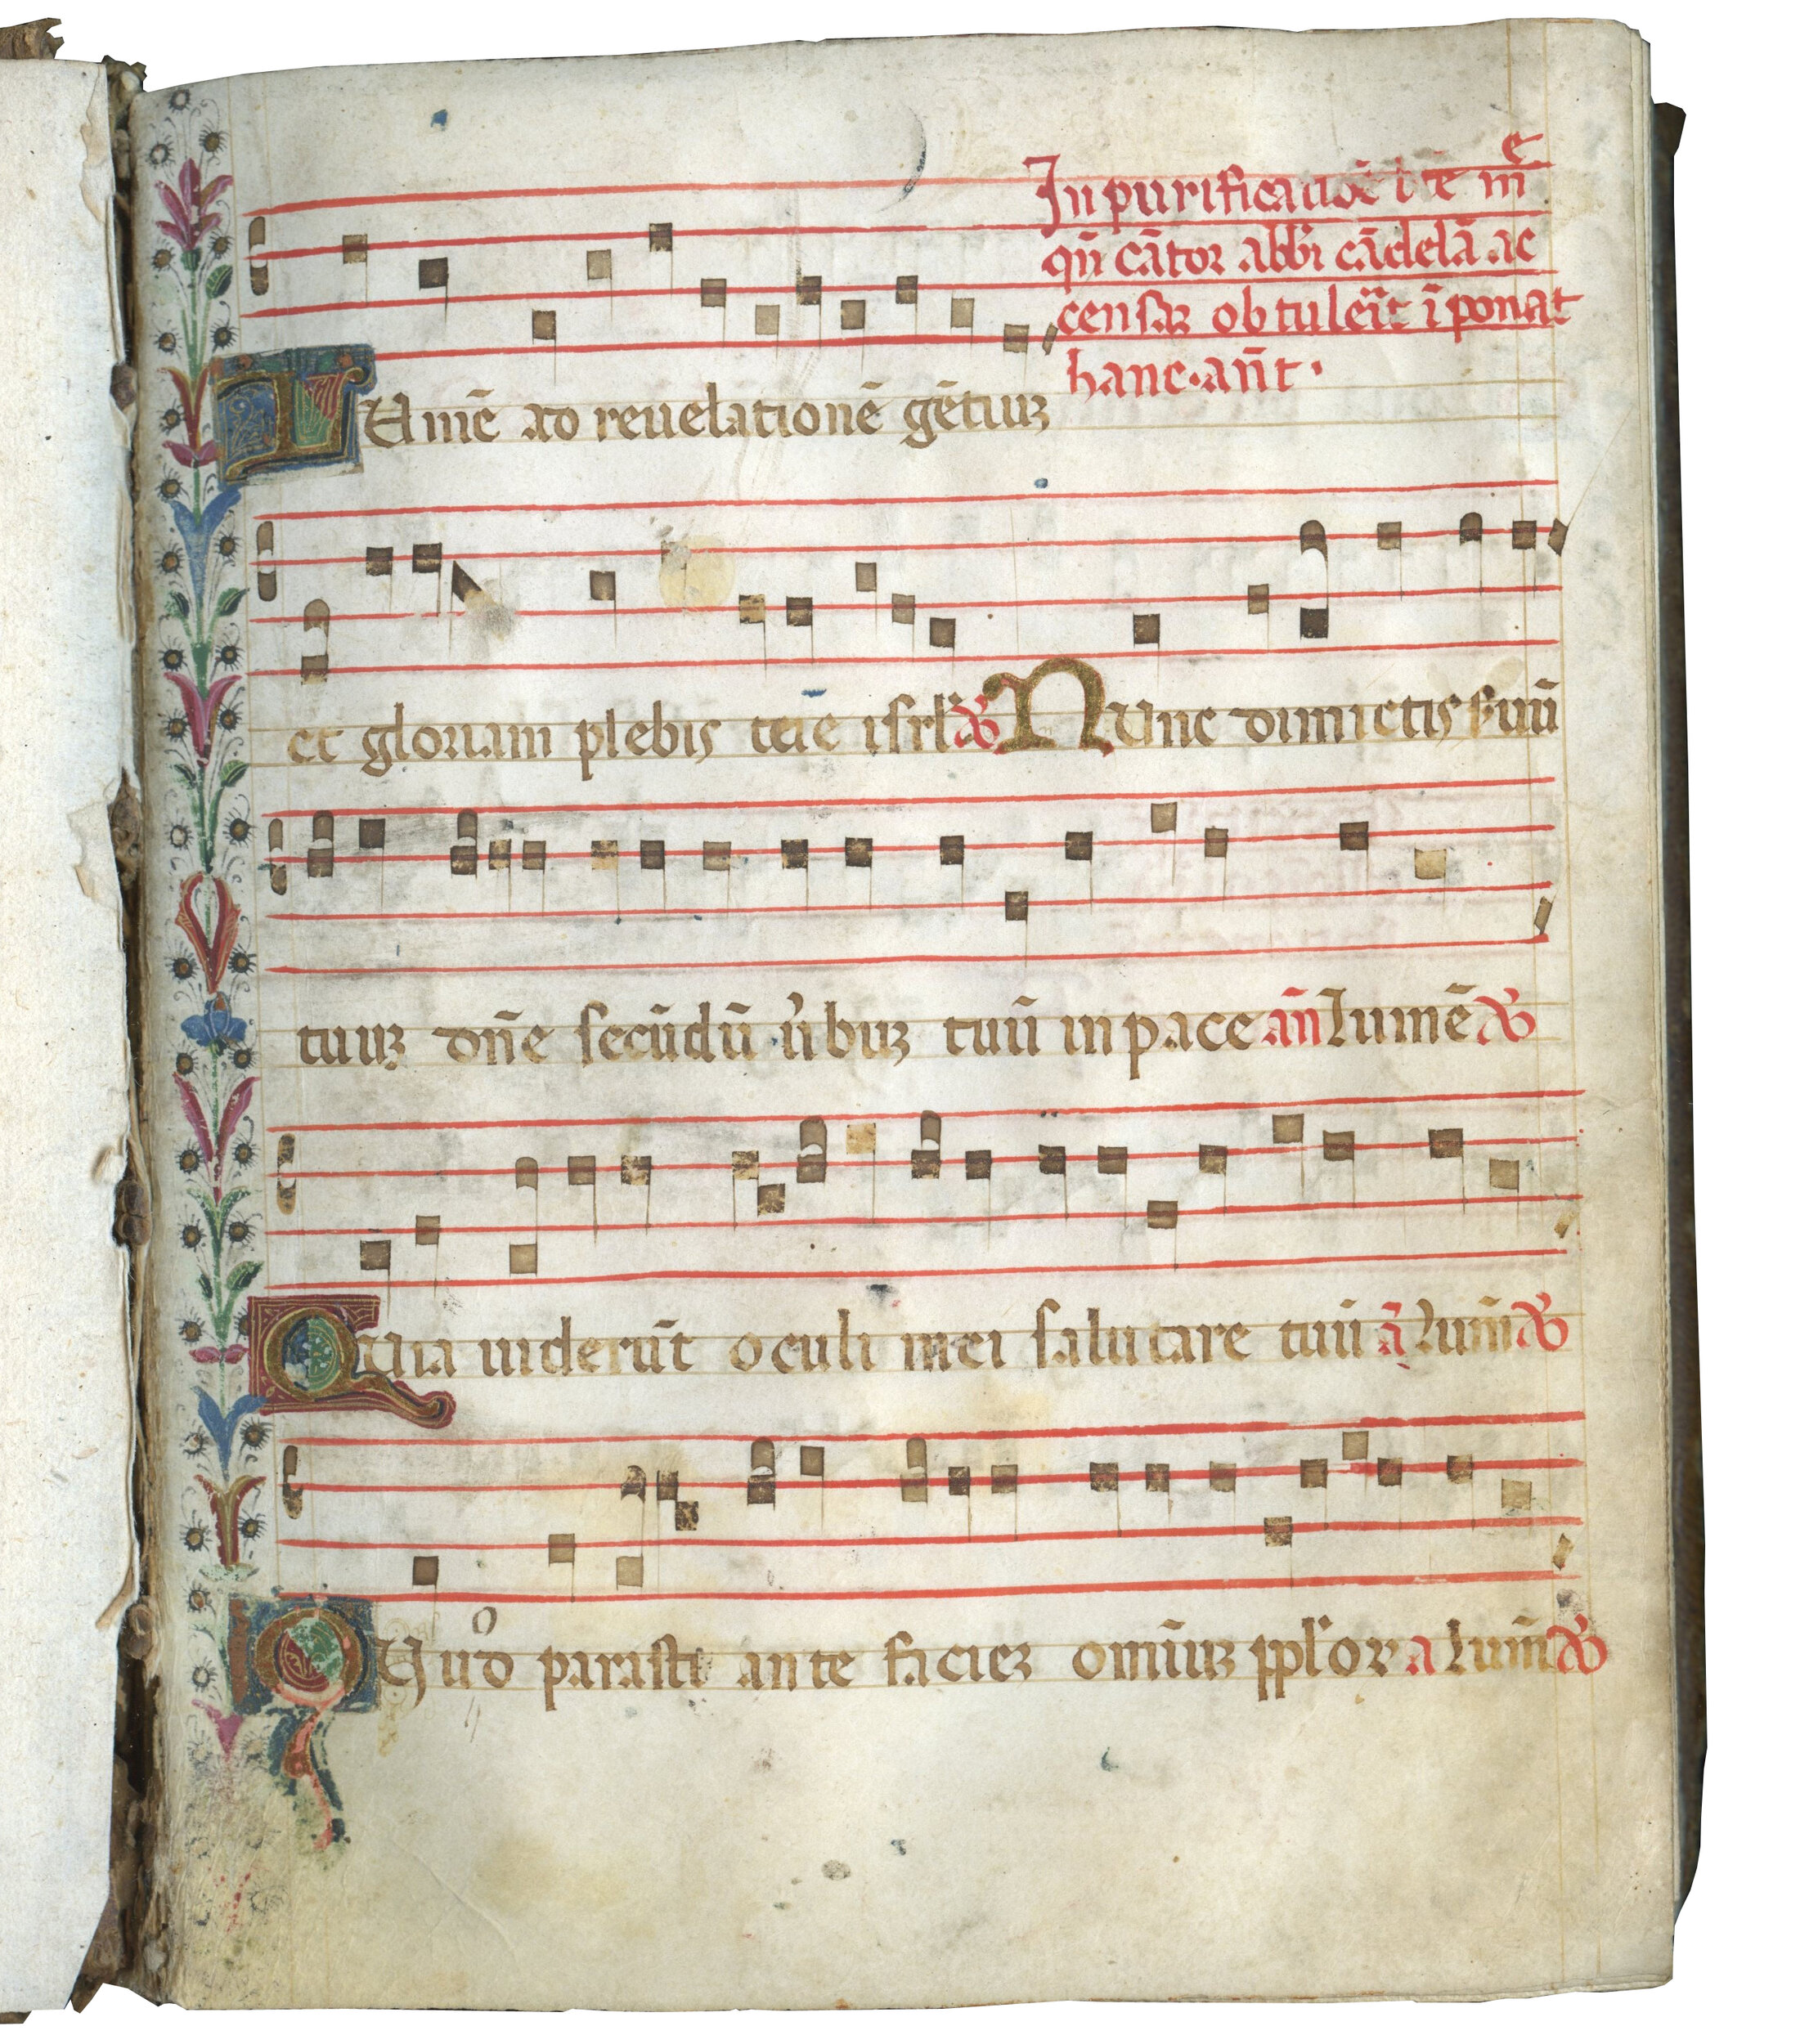 In purificatiōe b̄te m̄e
qn̄ cātor abb̄i cādelā ac
censaꝫ obtuleīt īponat
hanc·an̄t·
LUmē ad reuelationē gētiuꝫ
et gloriam plebis tue isrl̄ Nunc dimictis ẜuū
tuuꝫ dn̄e secūdū u̓buꝫ tuū in pace an̄ Lumē
Quia uiderūt oculi mei salutare tuū ā Lum̄
Quod parasti ante facieꝫ omīuꝫ ppl̓oꝝ a Lum̄